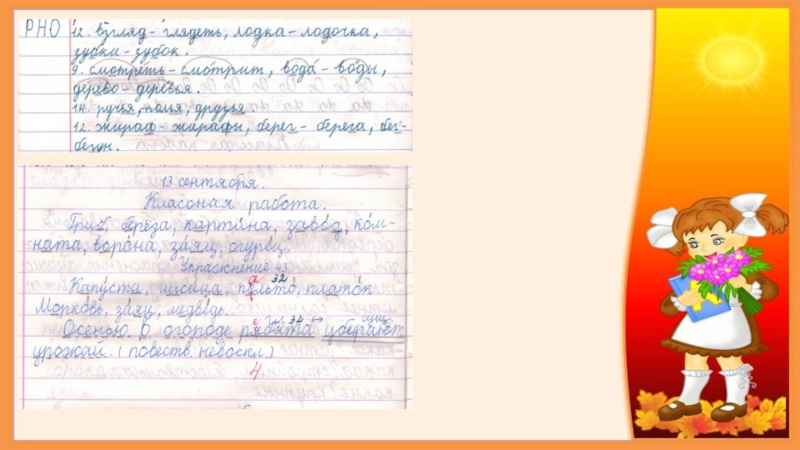 РНО 12. Взгляд - глядеть, лодка - лодочка,
зубки - зубок.
9. смотреть - смотрит, вода - воды,
дерево - деревья.
14. ручья, поля, друзья
12. жираф - жирафы, берег - берега, бег-
бегун.
13 сентября.
Классная работа.
берёза, картина, завод, ком-
ната, ворона, заяц, огурец.
Упражнение 43.
Капуста, лисица, пальто, платок
а 32
Морковь, заяц, медведь.
е 32 сущ.
Осенью в огороде рябята убирают
урожай. (повеств. невоскл.)
4.